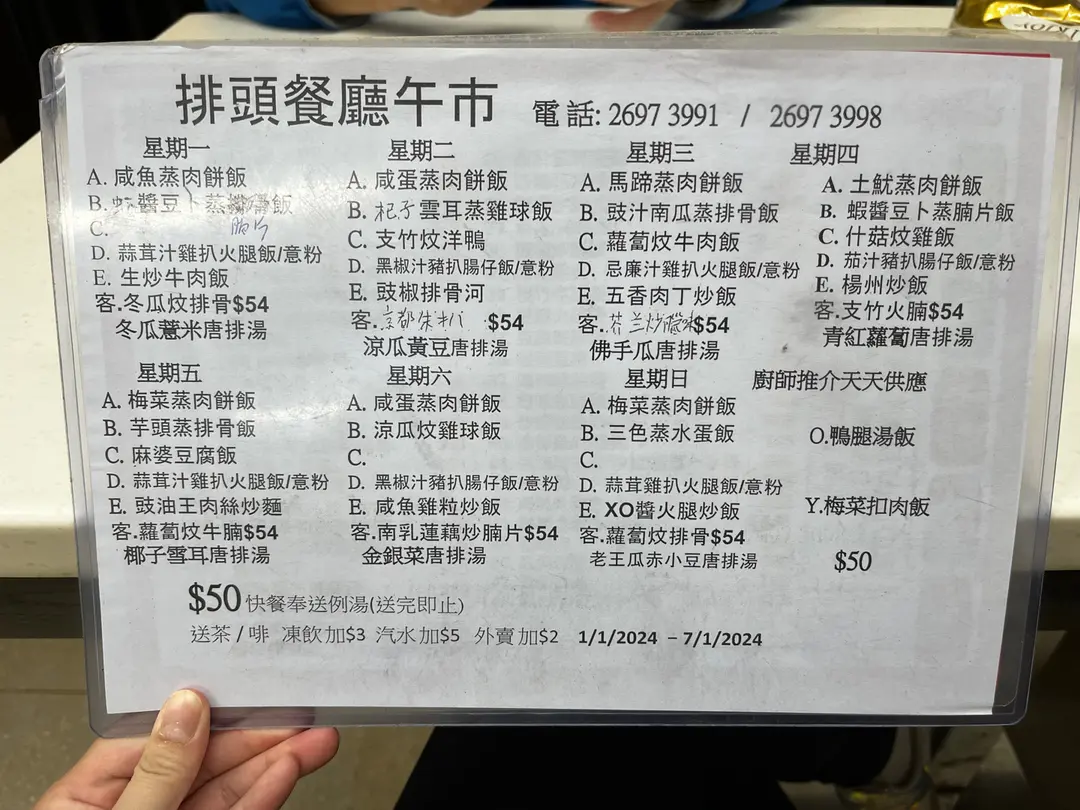 排頭餐廳午市 電話: 2697 3991 / 2697 3998
星期一
A. 咸魚蒸肉餅飯
B. 蝦醬豆卜蒸
腩片
C.
D. 蒜茸汁雞扒火腿飯/意粉
E. 生炒牛肉飯
客.冬瓜炆排骨$54
冬瓜薏米唐排湯
星期二
A. 咸蛋蒸肉餅飯
B. 杞子雲耳蒸雞球飯
C. 支竹炆洋鴨
D. 黑椒汁豬扒腸仔飯/意粉
E. 豉椒排骨河
客.京都朱扒 $54
涼瓜黃豆唐排湯
星期三
A. 馬蹄蒸肉餅飯
B. 豉汁南瓜蒸排骨飯
C. 蘿蔔炆牛肉飯
D. 忌廉汁雞扒火腿飯/意粉
E. 五香肉丁炒飯
客.芥兰炒腊味$54
佛手瓜唐排湯
星期四
A. 土魷蒸肉餅飯
B. 蝦醬豆卜蒸腩片飯
C. 什菇炆雞飯
D. 茄汁豬扒腸仔飯/意粉
E. 楊州炒飯
客.支竹火腩$54
青紅蘿蔔唐排湯
星期五
A. 梅菜蒸肉餅飯
B. 芋頭蒸排骨飯
C. 麻婆豆腐飯
D. 蒜茸汁雞扒火腿飯/意粉
E. 豉油王肉絲炒麵
客.蘿蔔炆牛腩$54
椰子雪耳唐排湯
星期六
A. 咸蛋蒸肉餅飯
B. 涼瓜炆雞球飯
C.
D. 黑椒汁豬扒腸仔飯/意粉
E. 咸魚雞粒炒飯
客.南乳蓮藕炒腩片$54
金銀菜唐排湯
星期日
A. 梅菜蒸肉餅飯
B. 三色蒸水蛋飯
C.
D. 蒜茸雞扒火腿飯/意粉
E. XO醬火腿炒飯
客.蘿蔔炆排骨$54
老王瓜赤小豆唐排湯
廚師推介天天供應
O.鴨腿湯飯
Y.梅菜扣肉飯
$50
$50快餐奉送例湯(送完即止)
送茶/啡 凍飲加$3 汽水加$5 外賣加$2 1/1/2024 – 7/1/2024